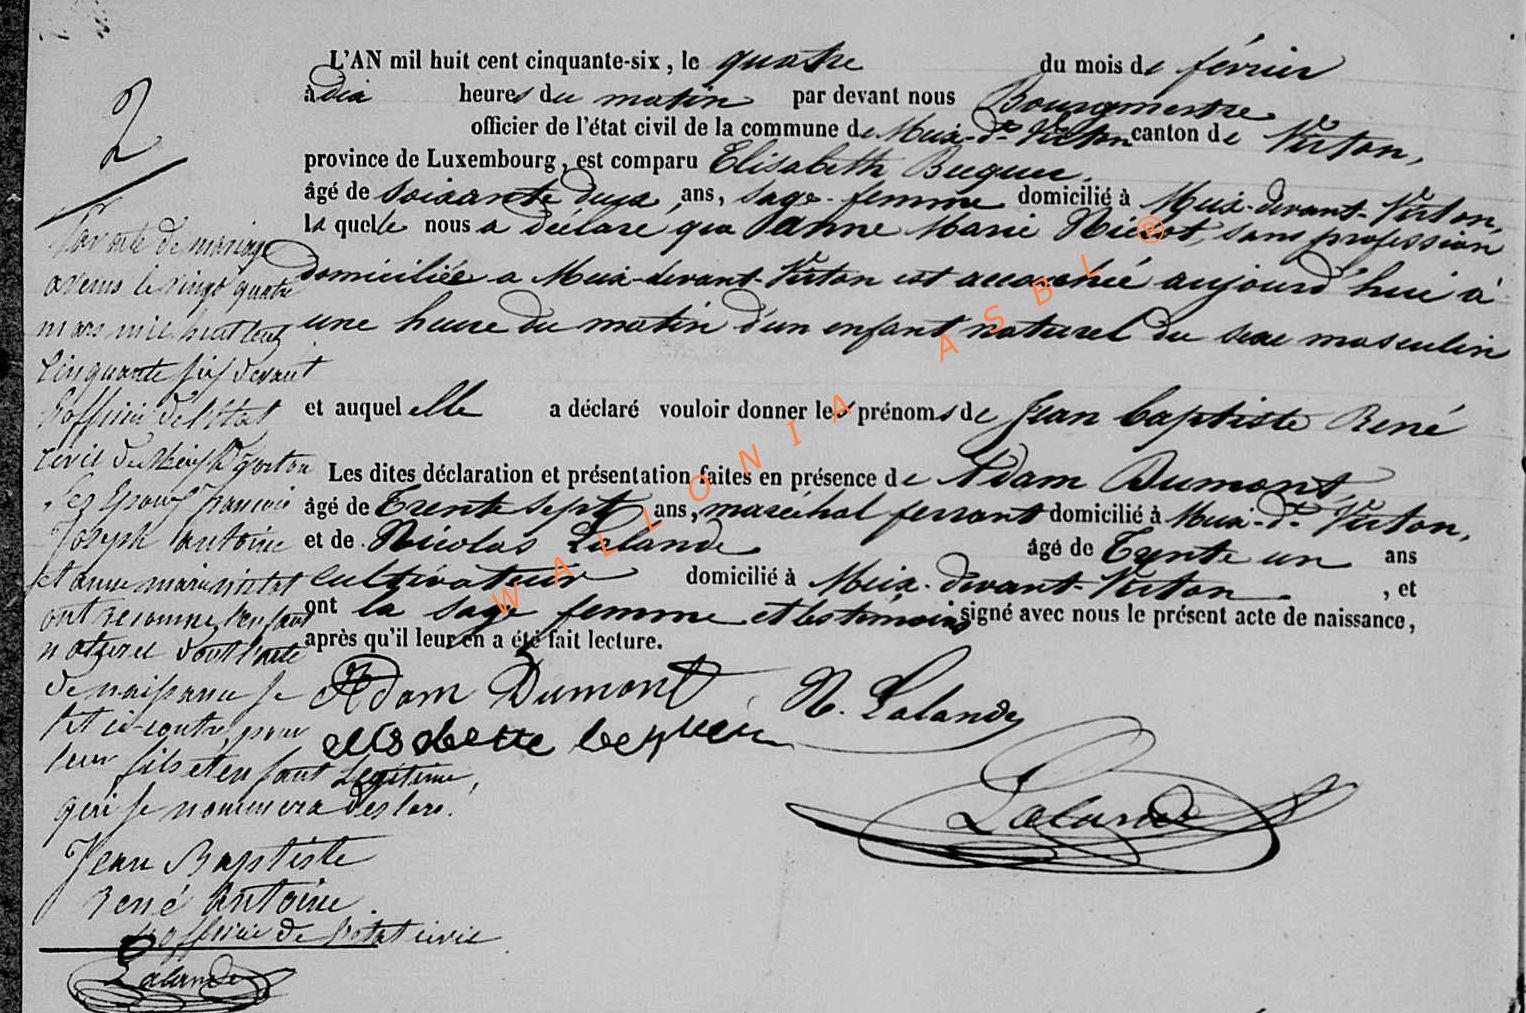 2
L'AN mil huit cent cinquante-six, le quatre du mois de février
à dix heures du matin par devant nous Bourgmestre
officier de l'état civil de la commune de Meix-dt-Virton canton de Virton,
province de Luxembourg, est comparu Elisabeth Bequer,
âgé de soixante deux ans, sage-femme domicilié à Meix-devant-Virton,
la quelle nous a déclaré que Anne Marie sans profession
domiciliée a Meix-devant-Virton est accouchée aujourd'hui à
une heure du matin d'un enfant naturel du sexe masculin
et auquel elle a déclaré vouloir donner les prénoms de Jean Baptiste René
Les dites déclaration et présentation faites en présence de Adam Dumont
âgé de Trente sept ans, maréchal ferrant domicilié à Meix-dt-Virton,
et de Nicolas Lalande âgé de Trente un ans
cultivateur domicilié à Meix-devant-Virton, et
ont la sage femme et les témoins signé avec nous le présent acte de naissance,
après qu'il leur en a été fait lecture.
Adam Dumont N. Lalande
Lalande
Par acte de mariage
avenu le vingt quatre
mars mil huit cent
cinquante six devant
l'officier de l'Etat
civil de Meix dt Virton
les Epoux francois
Joseph Antoine
et anne marie
ont reconnu l'enfant
naturel dont l'acte
de naissance se
est ci-contre pour
leur fils et enfant Légitime,
qui se nommera dès lors.
Jean Baptiste
René Antoine
l'officier de l'état civil
Lalande
WALLONIA ASBL ®